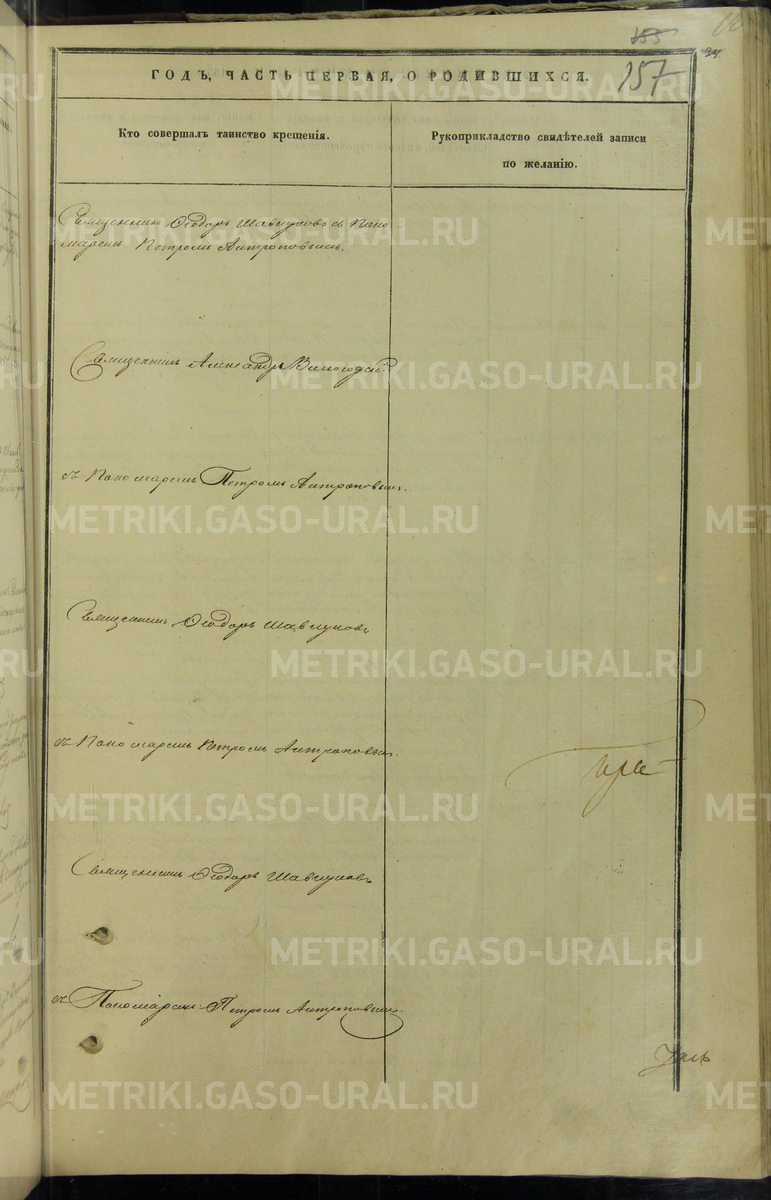 155
157
ГОДЪ, ЧАСТЬ ПЕРВАЯ, О РОДИВШИХСЯ.
Кто совершалъ таинство крещенія.
Рукоприкладство свидѣтелей записи
по желанію.
Священникъ Ѳеодоръ Шавкуновъ съ Поно-
маремъ Петромъ Антроповымъ.
Священникъ Александръ
съ Пономаремъ Петромъ Антроповымъ.
Священникъ Ѳеодоръ Шавкуновъ
съ Пономаремъ Петромъ Антроповымъ.
Священникъ Ѳеодоръ Шавкуновъ
съ Пономаремъ Петромъ Антроповымъ.
METRIKI.GASO-URAL.RU